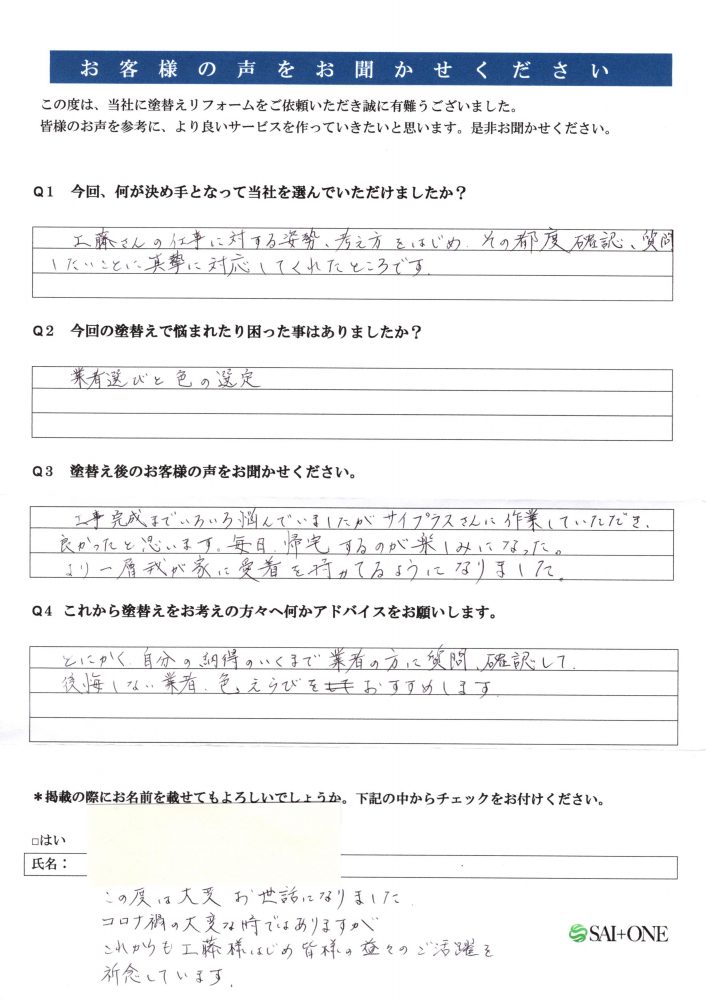 お客様の声をお聞かせください
この度は、当社に塗替えリフォームをご依頼いただき誠に有難うございました。
皆様のお声を参考に、より良いサービスを作っていきたいと思います。是非お聞かせください。
Q1 今回、何が決め手となって当社を選んでいただけましたか？
工藤さんの仕事に対する姿勢、考え方をはじめ、その都度確認、質問
したいことに真摯に対応してくれたところです。
Q2 今回の塗替えで悩まれたり困った事はありましたか？
業者選びと色の選定
Q3 塗替え後のお客様の声をお聞かせください。
工事完成までいろいろ悩んでいましたがサイプラスさんに作業していただき、
良かったと思います。毎日、帰宅するのが楽しみになった。
より一層我が家に愛着を持てるようになりました。
Q4 これから塗替えをお考えの方々へ何かアドバイスをお願いします。
とにかく、自分の納得のいくまで業者の方に質問、確認して、
後悔しない業者、色えらびをおすすめします
＊掲載の際にお名前を載せてもよろしいでしょうか。下記の中からチェックをお付けください。
□はい
氏名：
この度は大変お世話になりました。
コロナ禍の大変な時ではありますが
これからも工藤様はじめ皆様の益々のご活躍を
祈念しています。
SAI+ONE